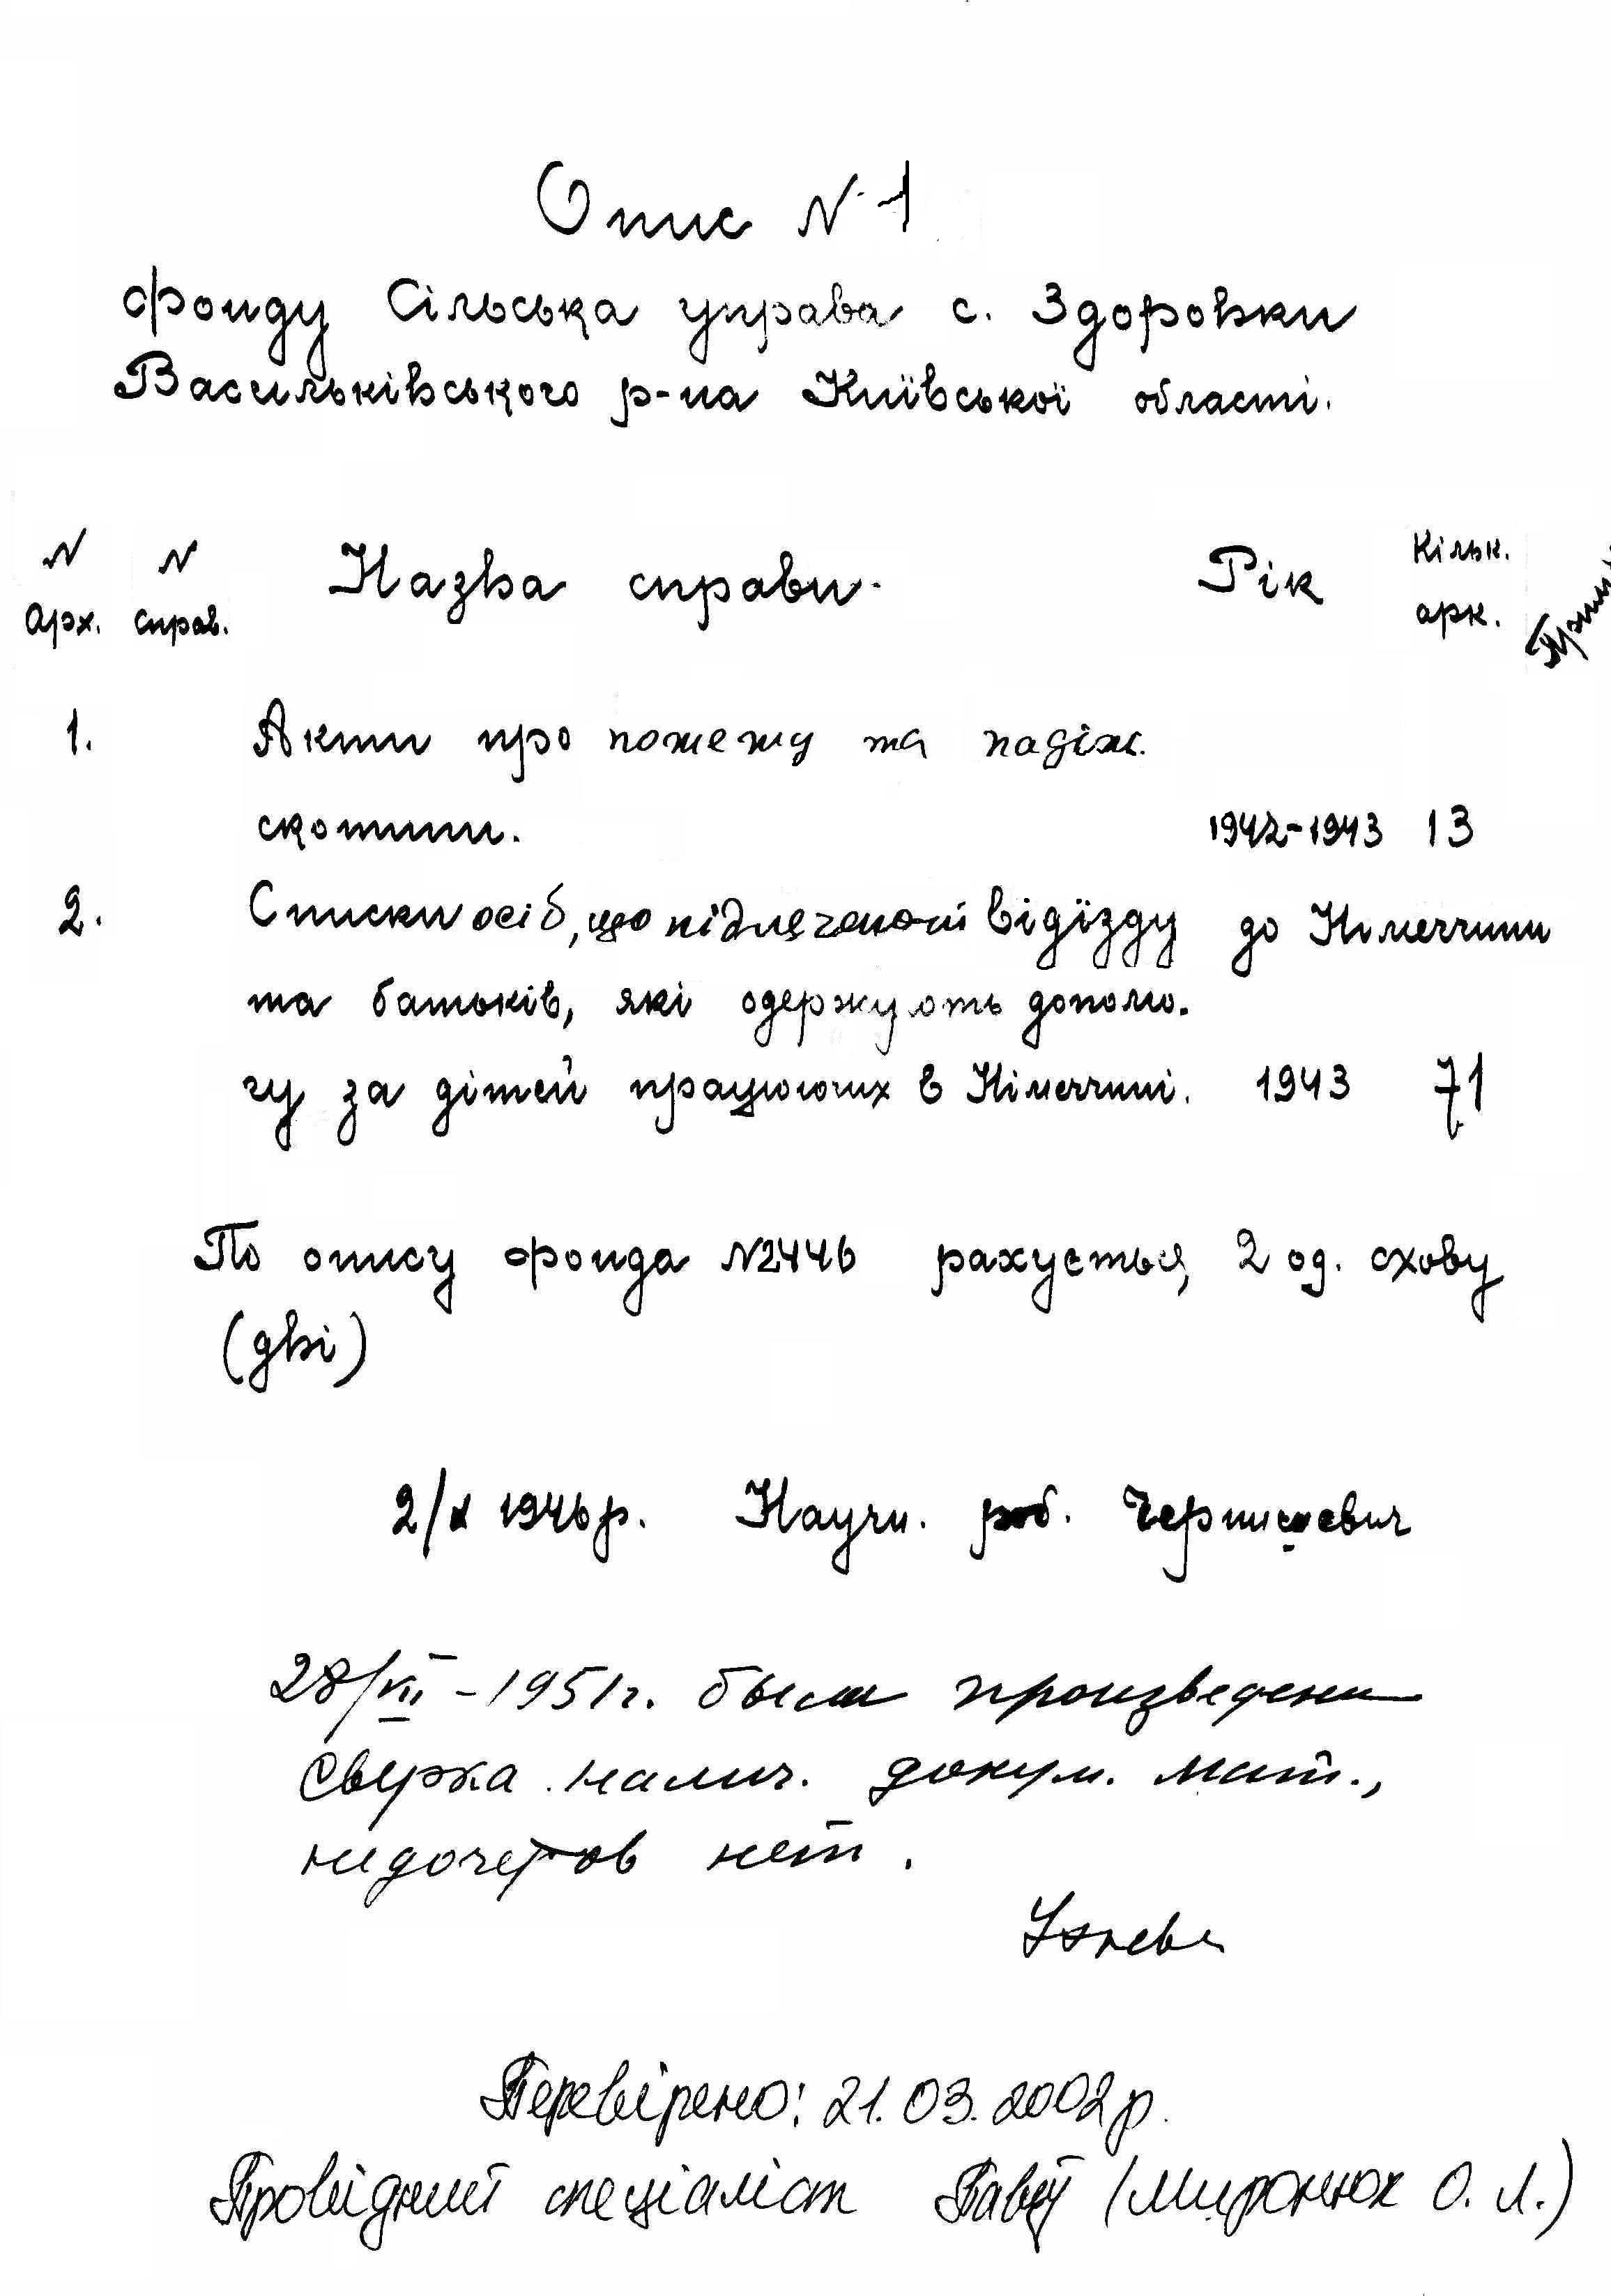 Опис N 1
фонду Сільська управа с. Здоровки
Васильківського р-на Київської області.
N N Назва справи. Рік Кільк.
Арх. справ. арк.
1. Акти про пожежу та падіж.
скотини. 1942-1943 13
2. Списки осіб, що підлягають відїзду до Німеччини
та батьків, які одержують допомо.
гу за дітей працюючих в Німеччині. 1943 71
По опису фонда N2446 рахується 2 од. схову
(дві)
2/X 1946р. Научн. роб.
28/VII-1951г. была произведена
сверка налич. докум. мат.,
недочетов нет.
Перевірено: 21.03.2002р.
Провідний спеціаліст (Миронюк О. Л.)